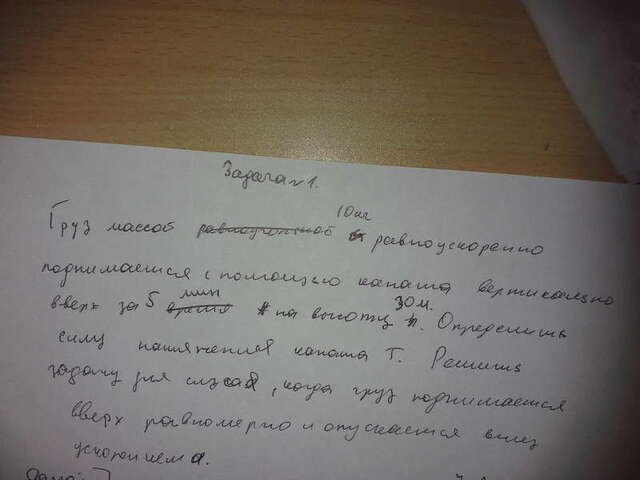 Задача №1.
Груз массой 10 кг равноускоренно
поднимается с помощью каната вертикально
вверх за 5 мин на высоту 30 м. Определить
силу натяжения каната T. Решить
задачу для случая, когда груз поднимается
вверх равномерно и опускается вниз
ускорением a.